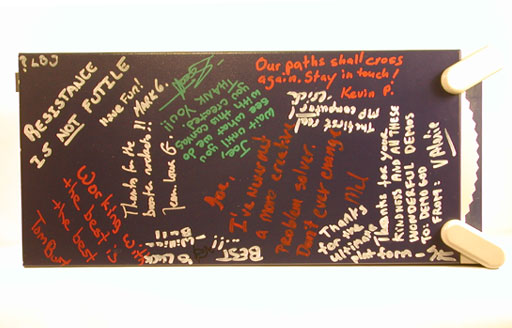 RESISTANCE
IS NOT FUTILE
Have Fun!
Mark G.
Our paths shall cross
again. Stay in touch!
Kevin P.
Joe,
Wait until you
see what
with this
you created
THANK You!!
The first real
computer
Thanks for the
booster rockets!!
Joe,
I've never met
a more creative
Problem solver.
Don't ever change
Thanks for your
KINDNESS AND All THESE
WONDERFUL DEMOS
TO: DEMO GOD
FROM: Valarie
Thanks
for the
ultimate
platform -
Working with
the best is
the best
Tom
BEST